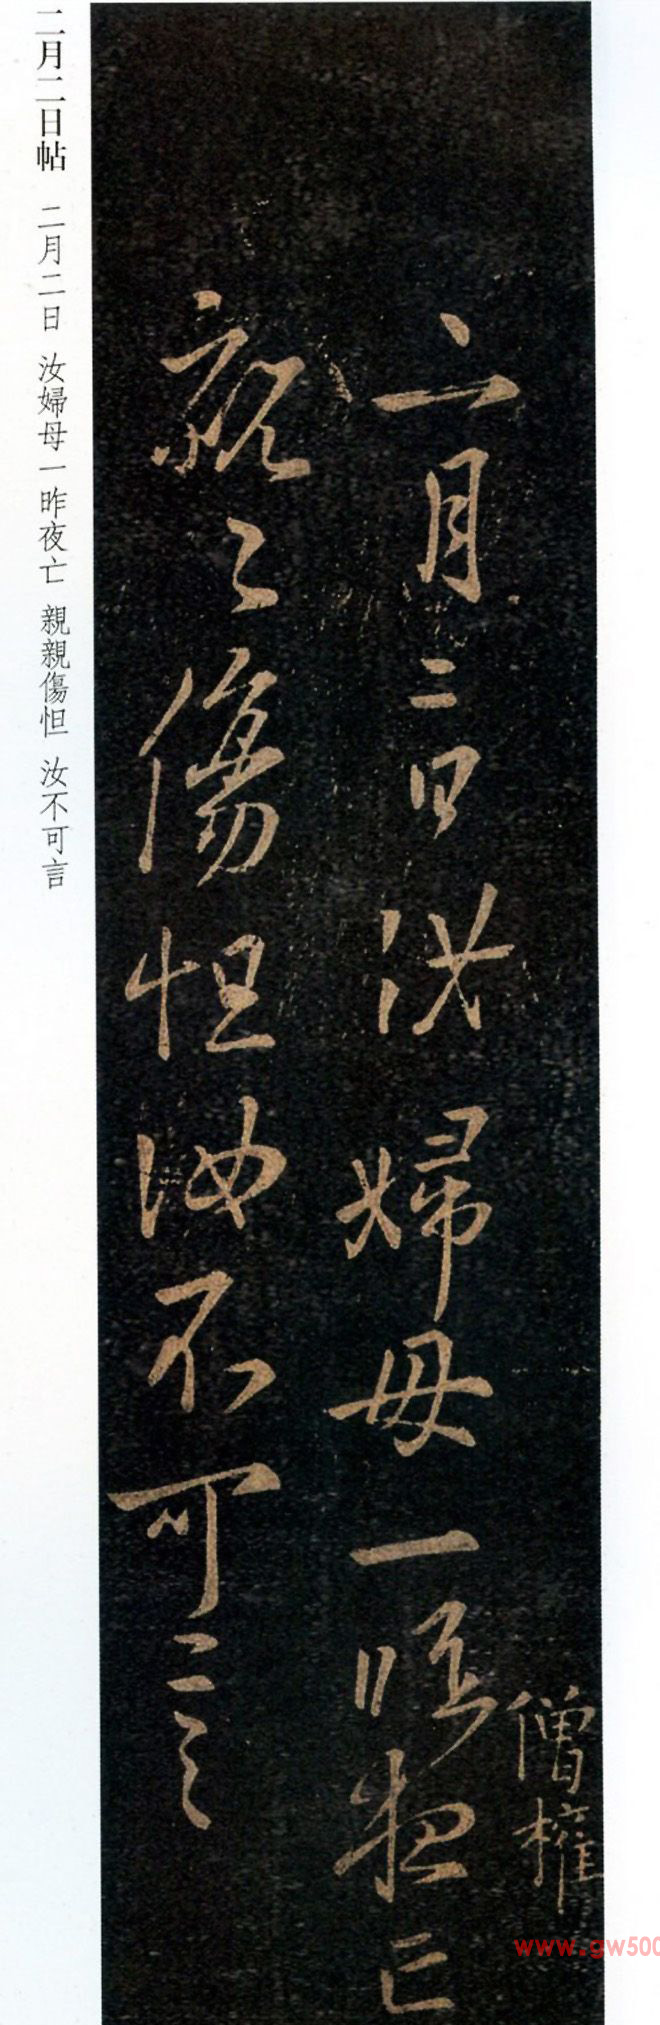 僧權
二月二日汝婦母一昨夜亡
親々傷怛汝不可言
二月二日帖 二月二日 汝婦母一昨夜亡 親親傷怛 汝不可言
www.gw500